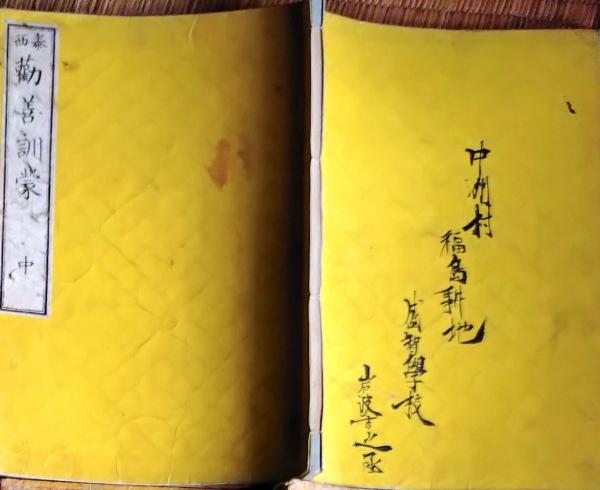 泰西
勸善訓蒙
中
中洲村
福島耕地
盛智學校
岩波吉之丞